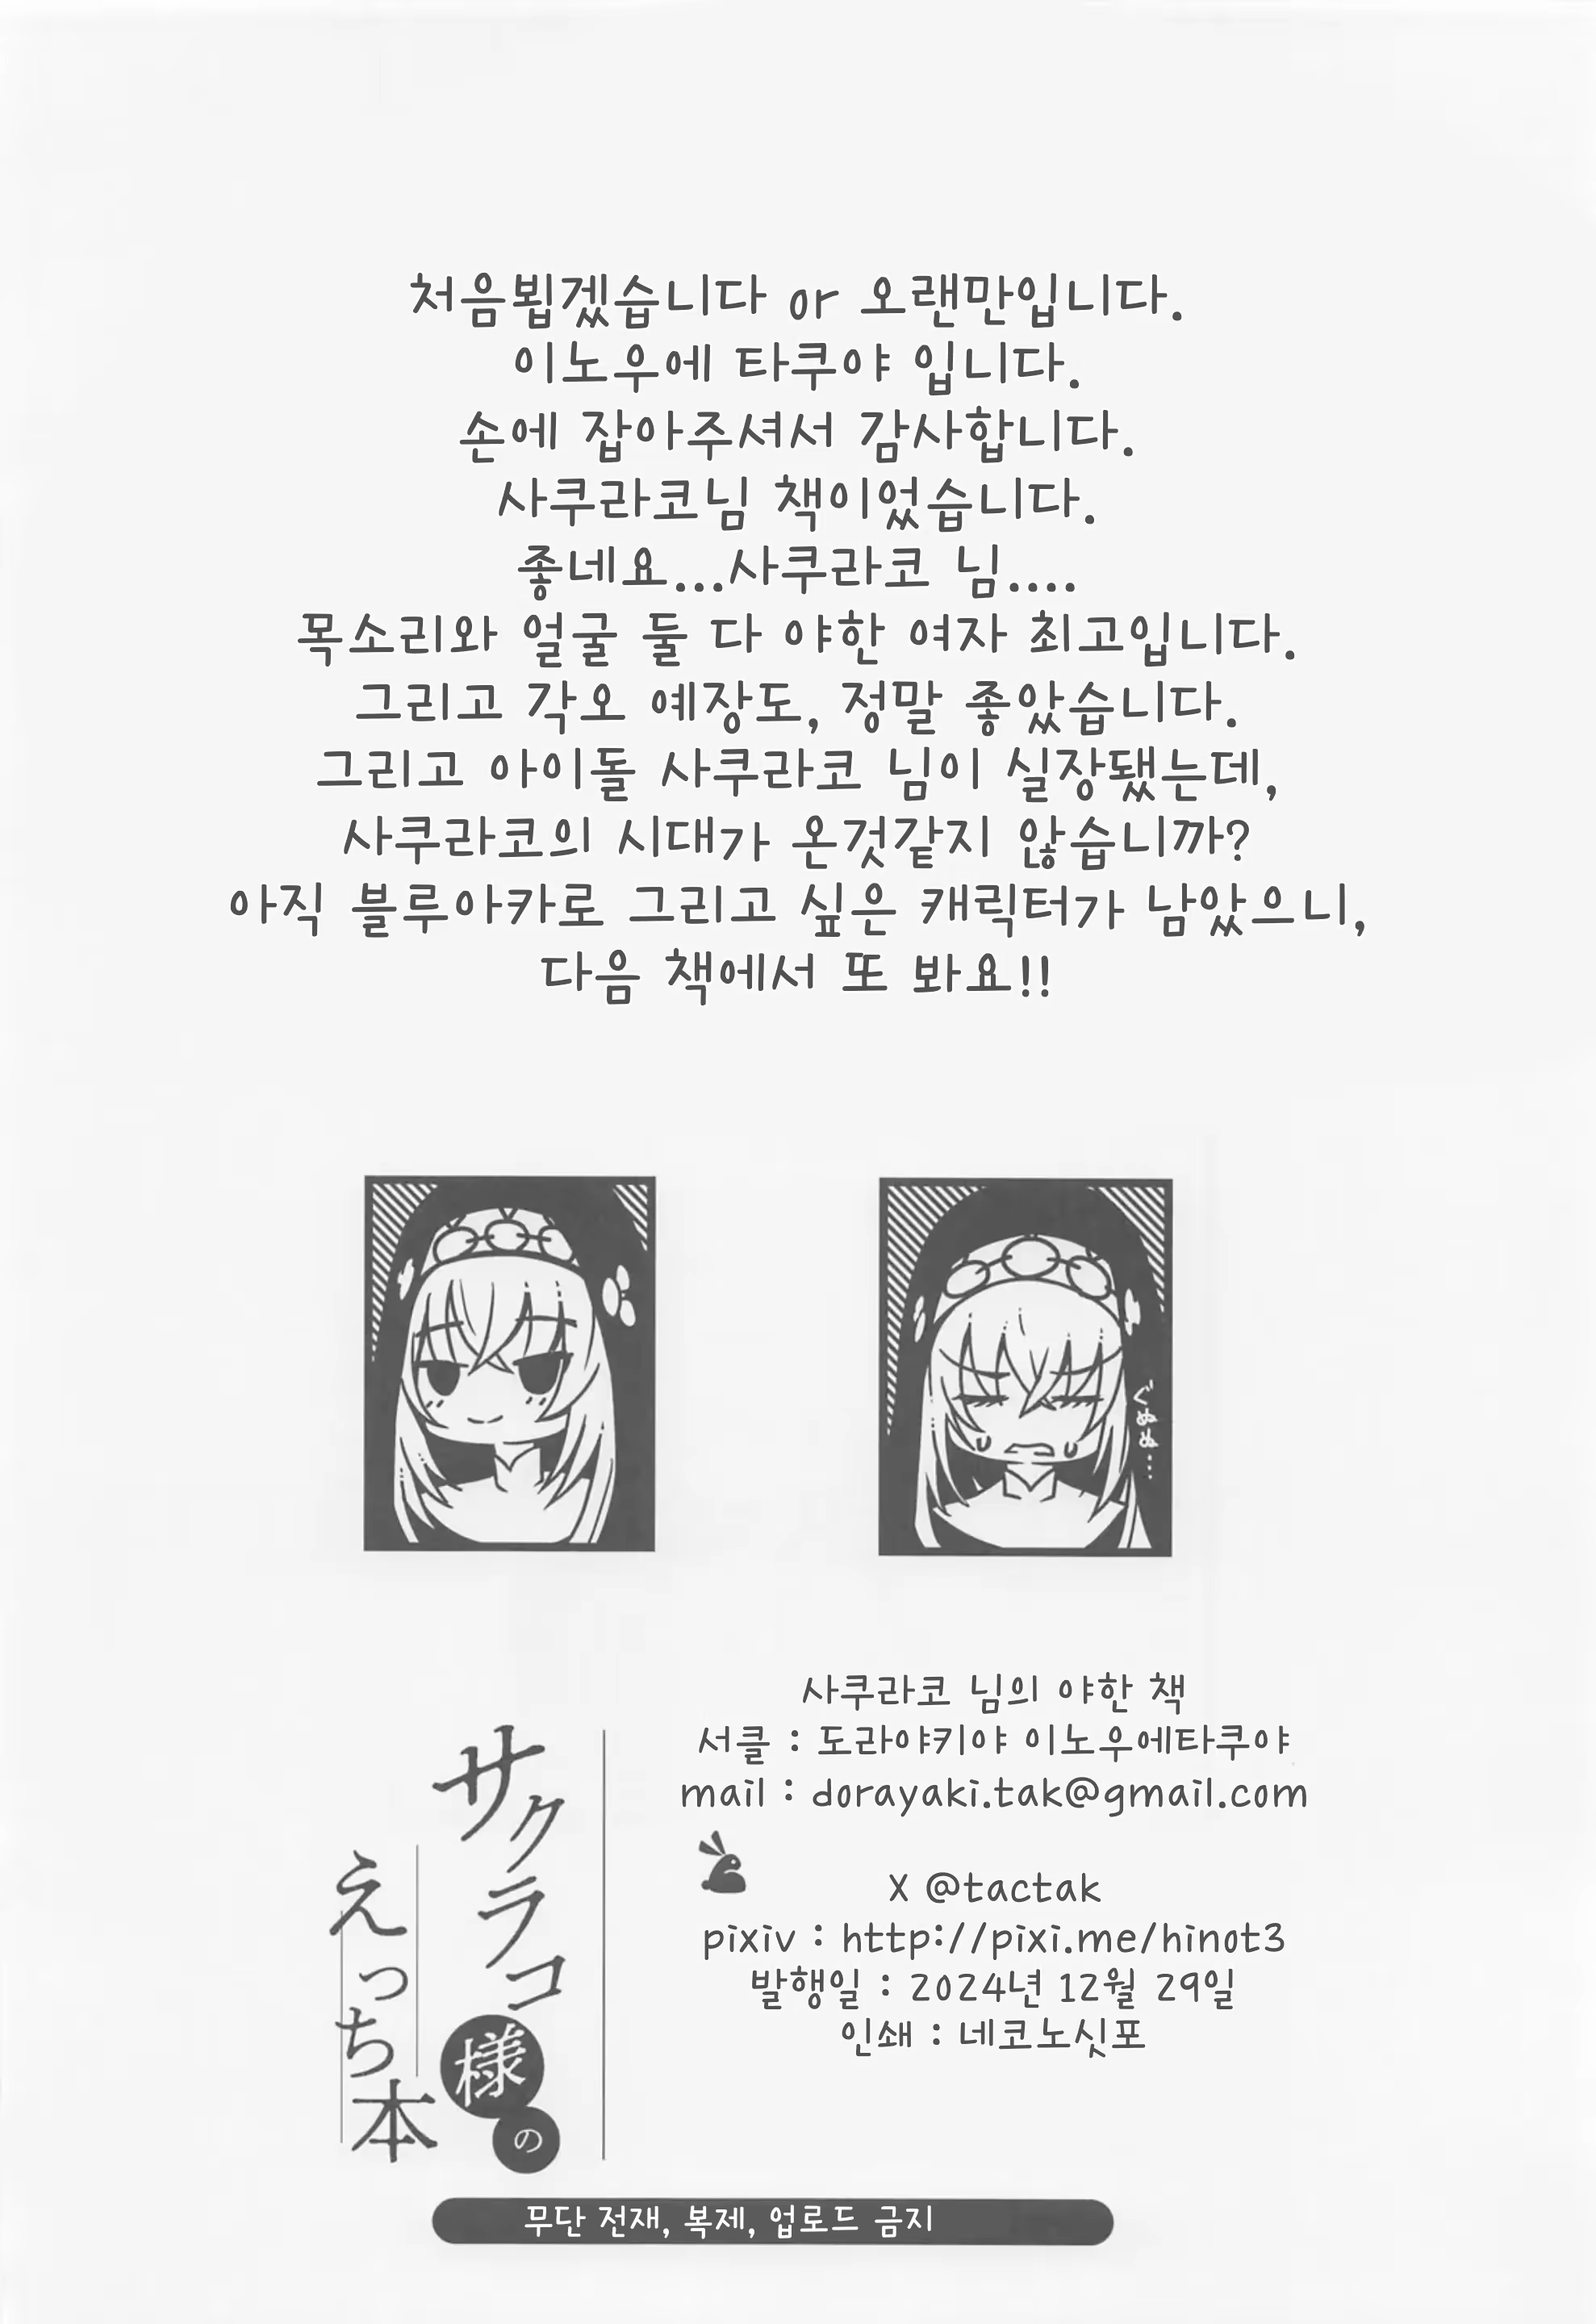 처음뵙겠습니다 or 오랜만입니다.
이노우에 타쿠야 입니다.
손에 잡아주셔서 감사합니다.
사쿠라코님 책이었습니다.
좋네요...사쿠라코 님....
목소리와 얼굴 둘 다 야한 여자 최고입니다.
그리고 각오 예장도, 정말 좋았습니다.
그리고 아이돌 사쿠라코 님이 실장됐는데,
사쿠라코의 시대가 온것같지 않습니까?
아직 블루아카로 그리고 싶은 캐릭터가 남았으니,
다음 책에서 또 봐요!!
ぐぬぬ…
サクラコ様の
えっち本
사쿠라코 님의 야한 책
서클 : 도라야키야 이노우에타쿠야
mail : dorayaki.tak@gmail.com
X @tactak
pixiv : http://pixi.me/hinot3
발행일 : 2024년 12월 29일
인쇄 : 네코노싯포
무단 전재, 복제, 업로드 금지